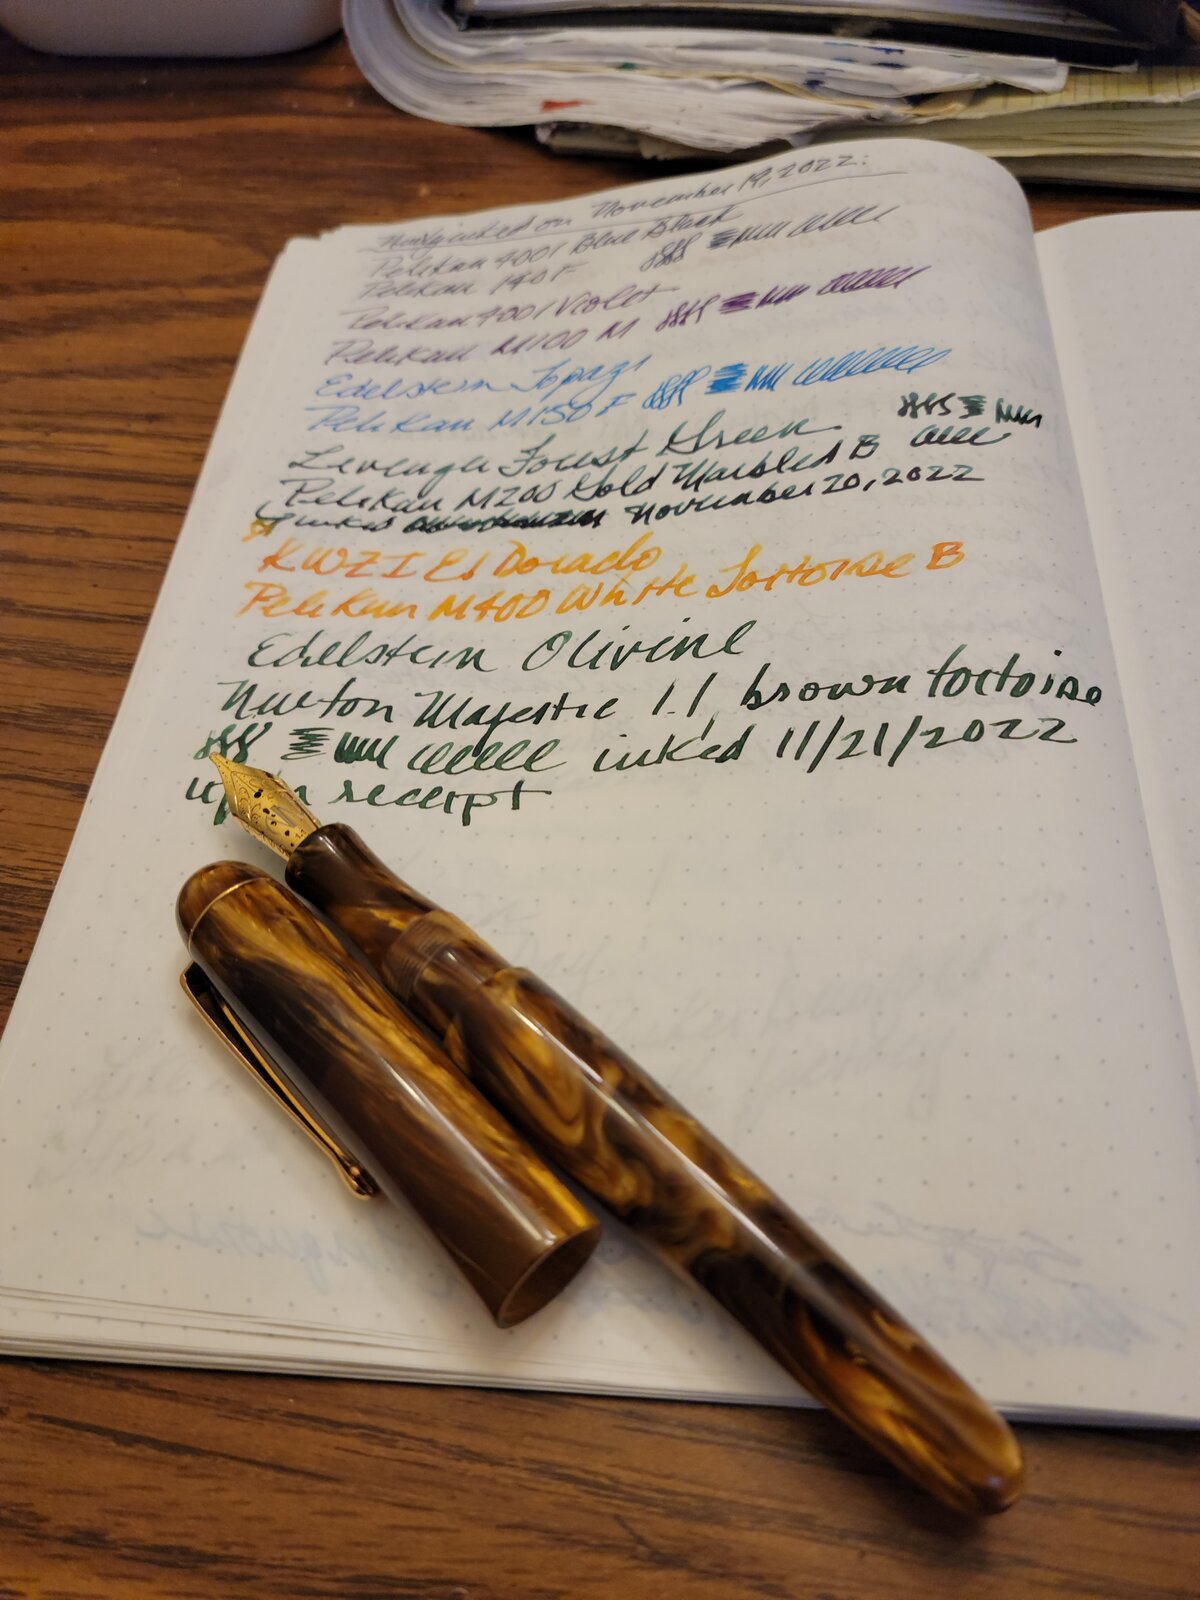 Newly inked on November 19, 2022:
Pelikan 4001 Blue Black
Pelikan 140 F
Pelikan 4001 Violet
Pelikan M100 M
Edelstein Topaz
Pelikan M150 F
Levenger Forest Green
Pelikan M200 Gold Marbled B
inked November 20, 2022
KWZI El Dorado
Pelikan M400 White Tortoise B
Edelstein Olivine
Newton Majestic 1.1 brown tortoise
inked 11/21/2022
upon receipt